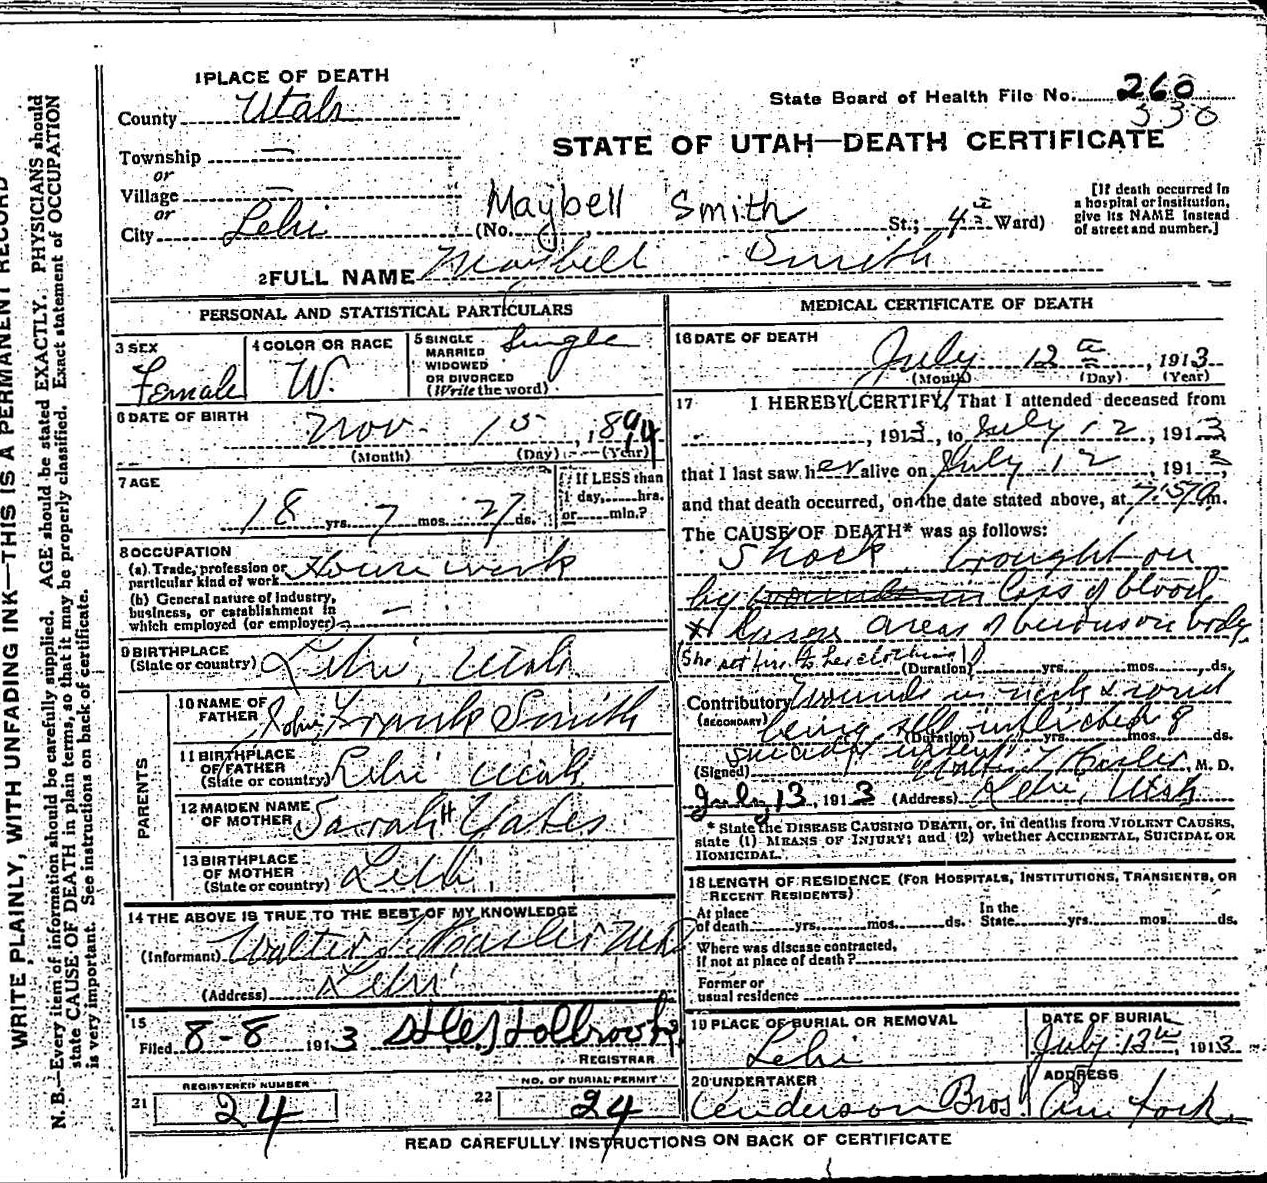 WRITE PLAINLY, WITH UNFADING INK—THIS IS A PERMANENT RECORD
N. B.—Every item of information should be carefully supplied. AGE should be stated EXACTLY. PHYSICIANS should
state CAUSE OF DEATH in plain terms, so that it may be properly classified. Exact statement of OCCUPATION
is very important. See instructions on back of certificate.
1 PLACE OF DEATH
County Utah
Township —
or
Village —
or
City Lehi
State Board of Health File No. 260
330
STATE OF UTAH—DEATH CERTIFICATE
Maybell Smith
(No. , St.; 4th Ward)
[If death occurred in
a hospital or institution,
give its NAME instead
of street and number.]
2 FULL NAME Maybell Smith
PERSONAL AND STATISTICAL PARTICULARS
3 SEX
Female
4 COLOR OR RACE
W.
5 SINGLE
MARRIED
WIDOWED
OR DIVORCED
(Write the word)
Single
6 DATE OF BIRTH
Nov. 15, 1894
(Month) (Day) (Year)
7 AGE
18 yrs. 7 mos. 27 ds.
If LESS than
1 day, hrs.
or min.?
8 OCCUPATION
(a) Trade, profession or
particular kind of work House work
(b) General nature of industry,
business, or establishment in
which employed (or employer) —
9 BIRTHPLACE
(State or country) Lehi, Utah
PARENTS
10 NAME OF
FATHER John Frank Smith
11 BIRTHPLACE
OF FATHER
(State or country) Lehi Utah
12 MAIDEN NAME
OF MOTHER Sarah H Yates
13 BIRTHPLACE
OF MOTHER
(State or country) Lehi
14 THE ABOVE IS TRUE TO THE BEST OF MY KNOWLEDGE
(Informant) Walter T. Hasler M.D.
(Address) Lehi
15
Filed 8-8 1913
REGISTRAR
REGISTERED NUMBER
21 24
NO. OF BURIAL PERMIT
22 24
MEDICAL CERTIFICATE OF DEATH
16 DATE OF DEATH
July 12th, 1913
(Month) (Day) (Year)
17 I HEREBY CERTIFY, That I attended deceased from
, 1913, to July 12, 1913
that I last saw her alive on July 12, 1913,
and that death occurred, on the date stated above, at m.
The CAUSE OF DEATH* was as follows:
Shock brought on
by wounds in loss of blood
areas of burns on body
(She set fire to her clothing)
(Duration) yrs. mos. ds.
Contributory Wounds in neck & wrist
(SECONDARY)
being self inflicted &
(Duration) yrs. mos. ds.
suicidal intent
(Signed) Walter T Hasler, M. D.
July 13, 1913 (Address) Lehi, Utah
* State the DISEASE CAUSING DEATH, or, in deaths from VIOLENT CAUSES,
state (1) MEANS OF INJURY; and (2) whether ACCIDENTAL, SUICIDAL OR
HOMICIDAL.
18 LENGTH OF RESIDENCE (FOR HOSPITALS, INSTITUTIONS, TRANSIENTS, OR
RECENT RESIDENTS)
At place
of death yrs. mos. ds.
In the
State yrs. mos. ds.
Where was disease contracted,
if not at place of death?
Former or
usual residence
19 PLACE OF BURIAL OR REMOVAL
Lehi
DATE OF BURIAL
July 13th, 1913
20 UNDERTAKER
Anderson Bros.
ADDRESS
Am Fork
READ CAREFULLY INSTRUCTIONS ON BACK OF CERTIFICATE